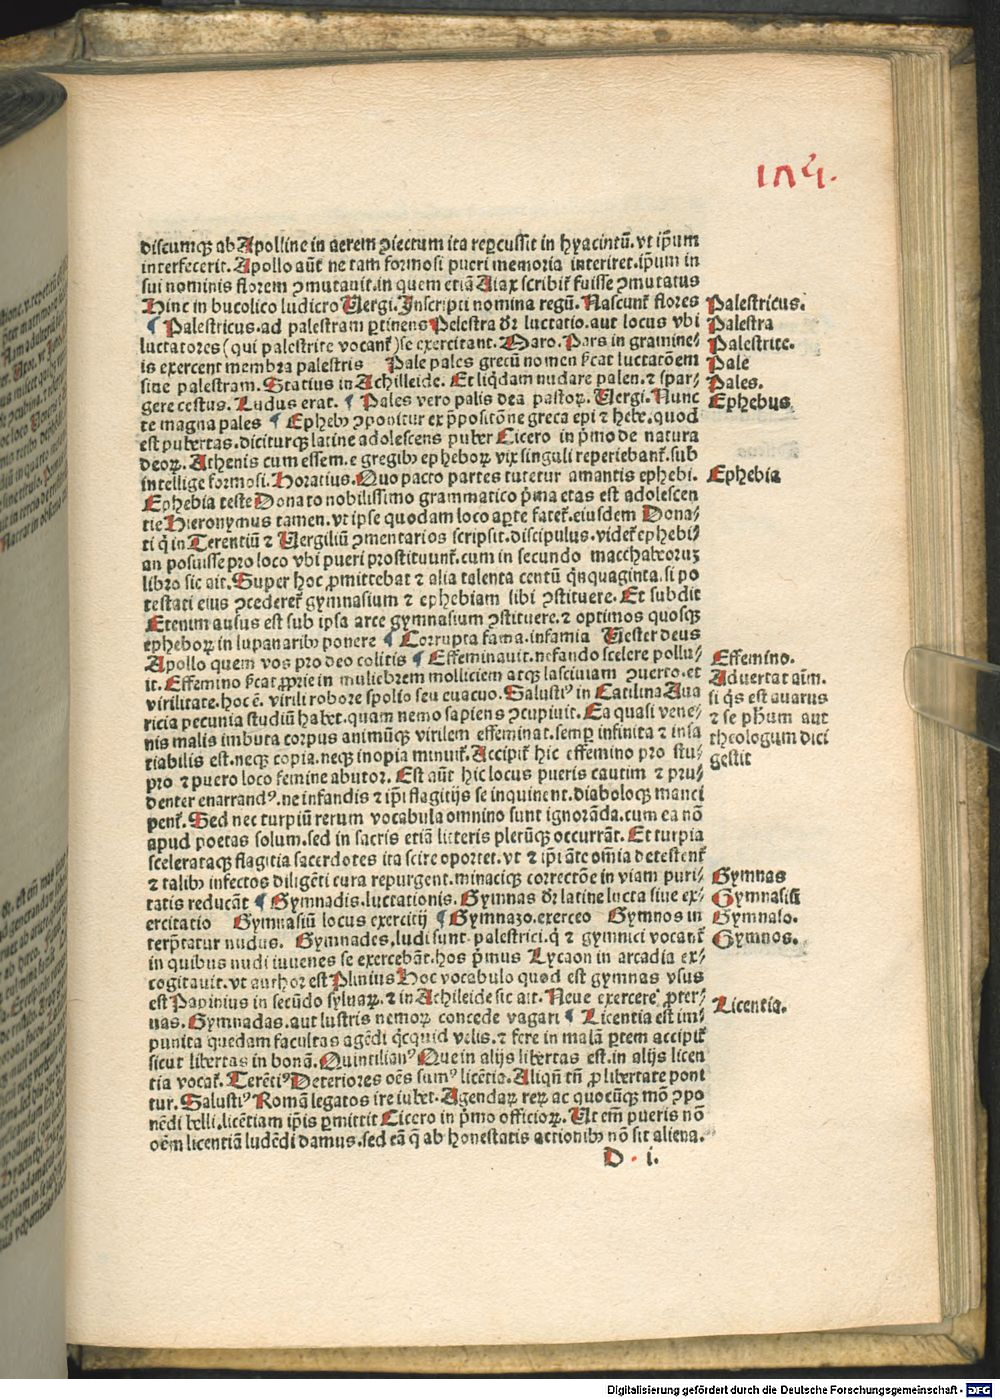 discumqꝫ ab Apolline in aerem ꝯiectum ita reꝑcussit in hyacintū. vt ip̄um
interfecerit. Apollo aūt ne tam formosi pueri memoria interiret. ip̄um in
sui nominis florem ꝯmutauit. in quem etiā Aiax scribit᷑ fuisse ꝯmutatus
Hinc in bucolico ludicro Uergi. Inscripti nomina regū. Nascunt᷑ flores
Palestricus.
¶ Palestricus. ad palestram ꝑtinens Pelestra dr̄ luctatio. aut locus vbi
Palestra
luctatores (qui palestrite vocant᷑) se exercitant. Maro. Pars in gramine⸗
Palestrite.
is exercent membra palestris Pale pales grecū nomen ſc̄at luctatōem
Pale
siue palestram. Statius in Achilleide. Et liq̇dam nudare palen. ⁊ spar⸗
Pales.
gere cestus. Ludus erat. ¶ Pales vero palis dea pastoꝝ. Uergi. Nunc
Ephebus
te magna pales ¶ Ephebꝰ ꝯponitur ex p̄positōne greca epi ⁊ hebe. quod
est pubertas. diciturqꝫ latine adolescens puber Cicero in p̄mo de natura
deoꝝ. Athenis cum essem. e gregibꝰ epheboꝝ vix singuli reperiebant᷑. sub
intellige formosi. Horatius. Quo pacto partes tutetur amantis ephebi.
Ephebia
Ephebia teste Donato nobilissimo grammatico p̄ma etas est adolescen
tie Hieronymus tamen. vt ipse quodam loco aꝑte fatet᷑. eiusdem Dona⸗
ti q̇ in Terentiū ⁊ Vergiliū ꝯmentarios scripsit. discipulus. videt᷑ ephebi⸗
an posuisse pro loco vbi pueri prostituunt᷑. cum in secundo macchabeoruꝫ
libro sic ait. Super hoc ꝓmittebat ⁊ alia talenta centū q̇nquaginta. si po
testati eius ꝯcederet᷑ gymnasium ⁊ ephebiam sibi ꝯstituere. Et subdit
Etenim ausus est sub ipsa arce gymnasium ꝯstituere. ⁊ optimos quosqꝫ
epheboꝝ in lupanaribꝰ ponere ¶ Corrupta fama. infamia Uester deus
Apollo quem vos pro deo colitis ¶ Effeminauit. nefando scelere pollu⸗
Effemino.
it. Effemino ſc̄at ꝓprie in muliebrem molliciem atqꝫ lasciuiam ꝯuerto. et
Aduertat aīm.
virilitate. hoc ē. virili robore spolio seu euacuo. Salustiꝰ in Catilina Aua
si q̇s est auarus
ricia pecunia studiū habet. quam nemo sapiens ꝯcupiuit. Ea quasi vene⸗
⁊ se ph̄um aut
nis malis imbuta corpus animūqꝫ virilem effeminat. semꝑ infinita ⁊ insa
theologum dici
tiabilis est. neqꝫ copia. neqꝫ inopia minuit᷑. Accipit᷑ hic effemino pro stu⸗
gestit
pro ⁊ puero loco femine abutor. Est aūt hic locus pueris cautim ⁊ pru⸗
denter enarrandꝰ. ne infandis ⁊ ip̄i flagitijs se inquinent. diaboloqꝫ manci
pent᷑. Sed nec turpiū rerum vocabula omnino sunt ignorāda. cum ea nō
apud poetas solum. sed in sacris etiā litteris plerūqꝫ occurrāt. Et turpia
scelerataqꝫ flagitia sacerdotes ita scire oportet. vt ⁊ ip̄i āte om̄ia detestent᷑
⁊ talibꝰ infectos diligēti cura repurgent. minacíqꝫ correctōe in viam puri⸗
Gymnas
tatis reducāt ¶ Gymnadis. luctationis. Gymnas dr̄ latine lucta siue ex⸗
Gymnasiū
ercitatio Gymnasiū locus exercitij ¶ Gymnazo. exerceo Gymnos in
Gymnaso.
terp̄tatur nudus. Gymnades, ludi sunt palestrici. q̇ ⁊ gymnici vocant᷑
Gymnos.
in quibus nudi iuuenes se exercebāt. hos p̄mus Lycaon in arcadia ex⸗
cogitauit. vt author est Plinius Hoc vocabulo quod est gymnas vsus
est Papinius in secūdo syluaꝝ. ⁊ in Achileide sic ait. Neue exercere ꝓter⸗
uas. Gymnadas. aut lustris nemoꝝ concede vagari ¶ Licentia est im⸗
Licentia.
punita quedam facultas agēdi q̇cquid velis. ⁊ fere in malā ꝑtem accipit᷑
sicut libertas in bonā. Quintilianꝰ Que in alijs libertas est. in alijs licen
tia vocat᷑. Terētiꝰ Deteriores oēs sumꝰ licētia. Aliqn̄ tn̄ ꝓ libertate poni
tur. Salustiꝰ Romā legatos ire iubet. Agendaꝝ reꝝ ac quocūqꝫ mō ꝯpo
nēdi belli. licētiam ip̄is ꝑmittit Cicero in p̄mo officioꝝ. Ut em̄ pueris nō
oēm licentiā ludēdi damus. sed eā q̄ ab honestatis actionibꝰ nō sit aliena.
D . i.
Digitalisierung gefördert durch die Deutsche Forschungsgemeinschaft - DFG